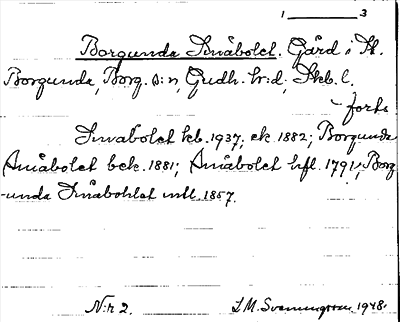 1 3
Borgunda Småbolet. Gård i St.
Borgunda, Borg. s:n, Gudh. h:d, Skb. l.
forts
Småbolet kb. 1937; ek. 1882; Borgunda
Småbolet bek. 1881; Småbolet hfl. 1791; Borg
-unda Småbohlet mtl. 1857.
N:r 2. S.M. Svenungsson 1948.